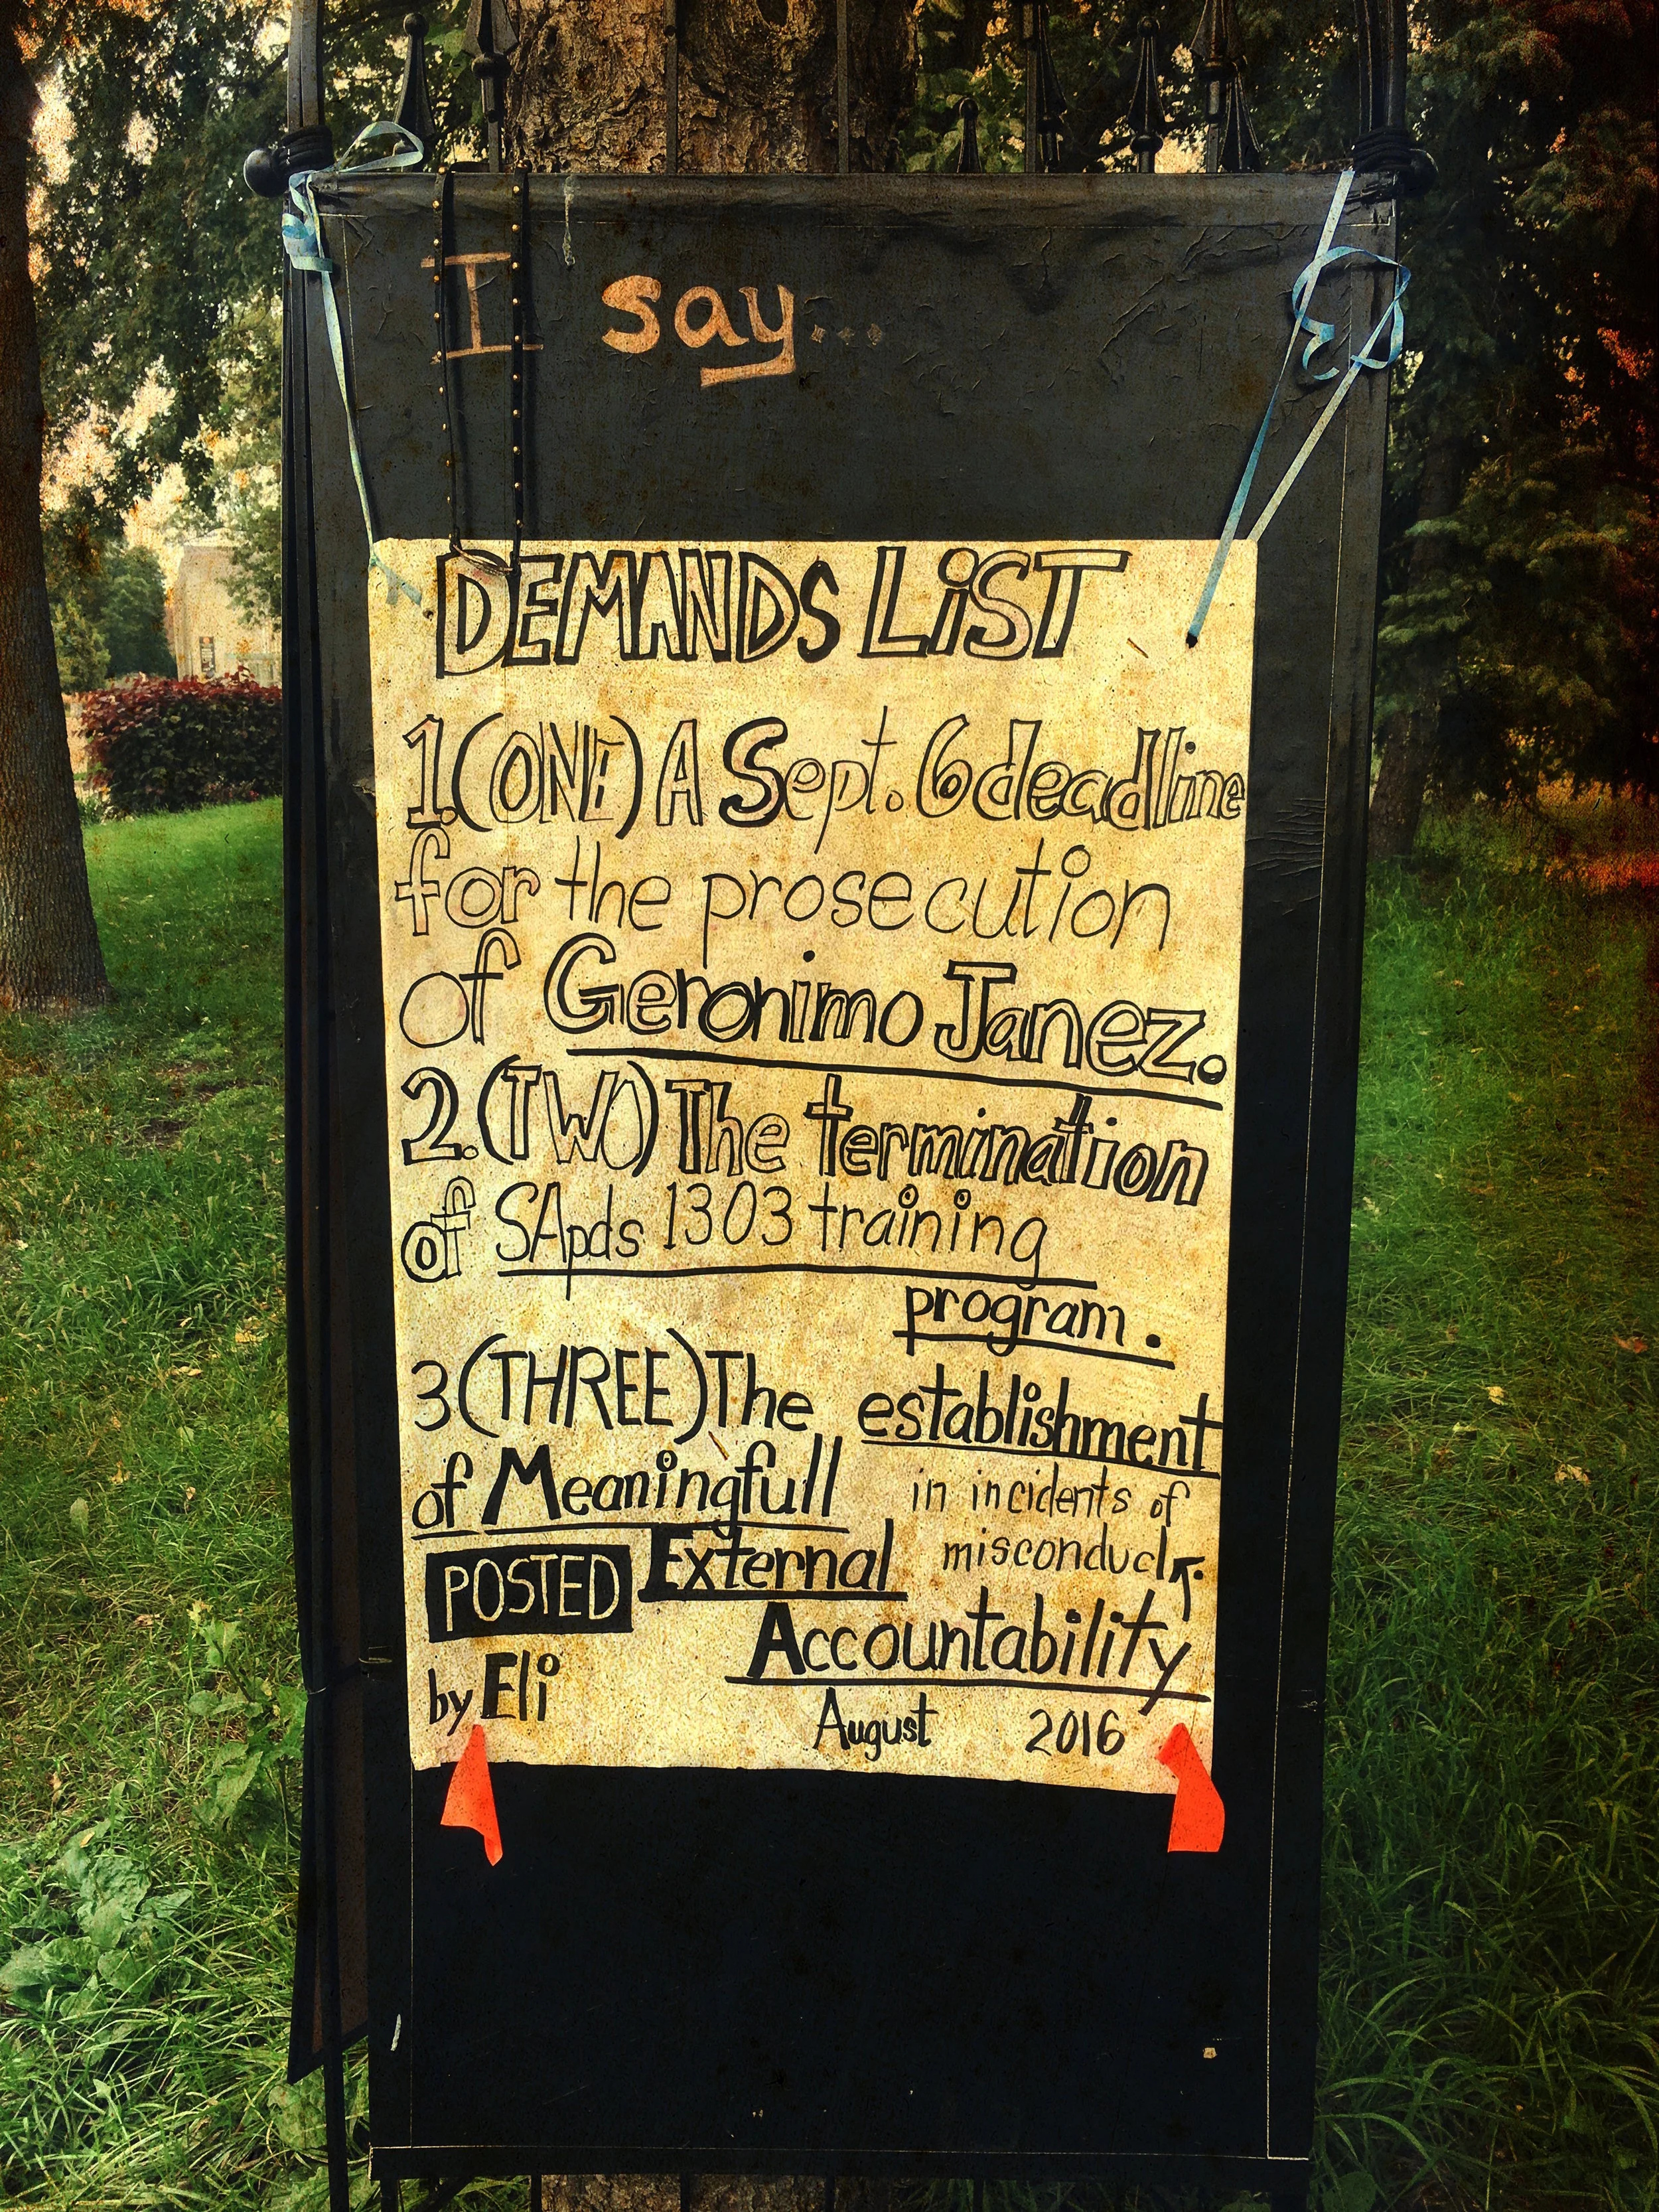 I say...
DEMANDS LiST
1.(ONE) A Sept. 6 deadline
for the prosecution
of Geronimo Janez.
2.(TWO) The termination
of SApds 1303 training
program.
3(THREE) The establishment
of Meaningfull
in incidents of
misconduct.
External
Accountability
POSTED
by Eli
August 2016